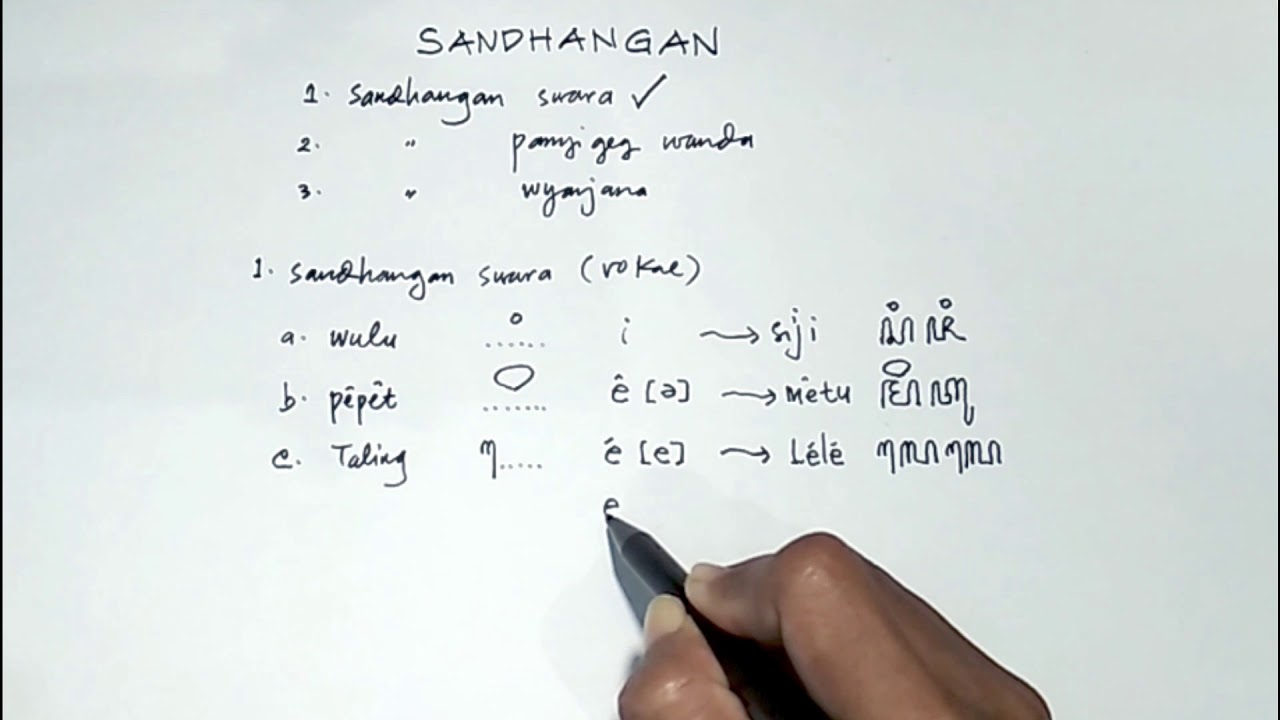 SANDHANGAN
1. Sandhangan swara ✓
2. " panyigeg wanda
3. " wyanjana
1. Sandhangan swara (vokal)
a. wulu ...... i → siji ꦱꦶꦗꦶ
b. pêpêt ....... ê [ə] → mêtu ꦩꦼꦠꦸ
c. Taling ꦺ..... é [e] → Lélé ꦭꦺꦭꦺ
e